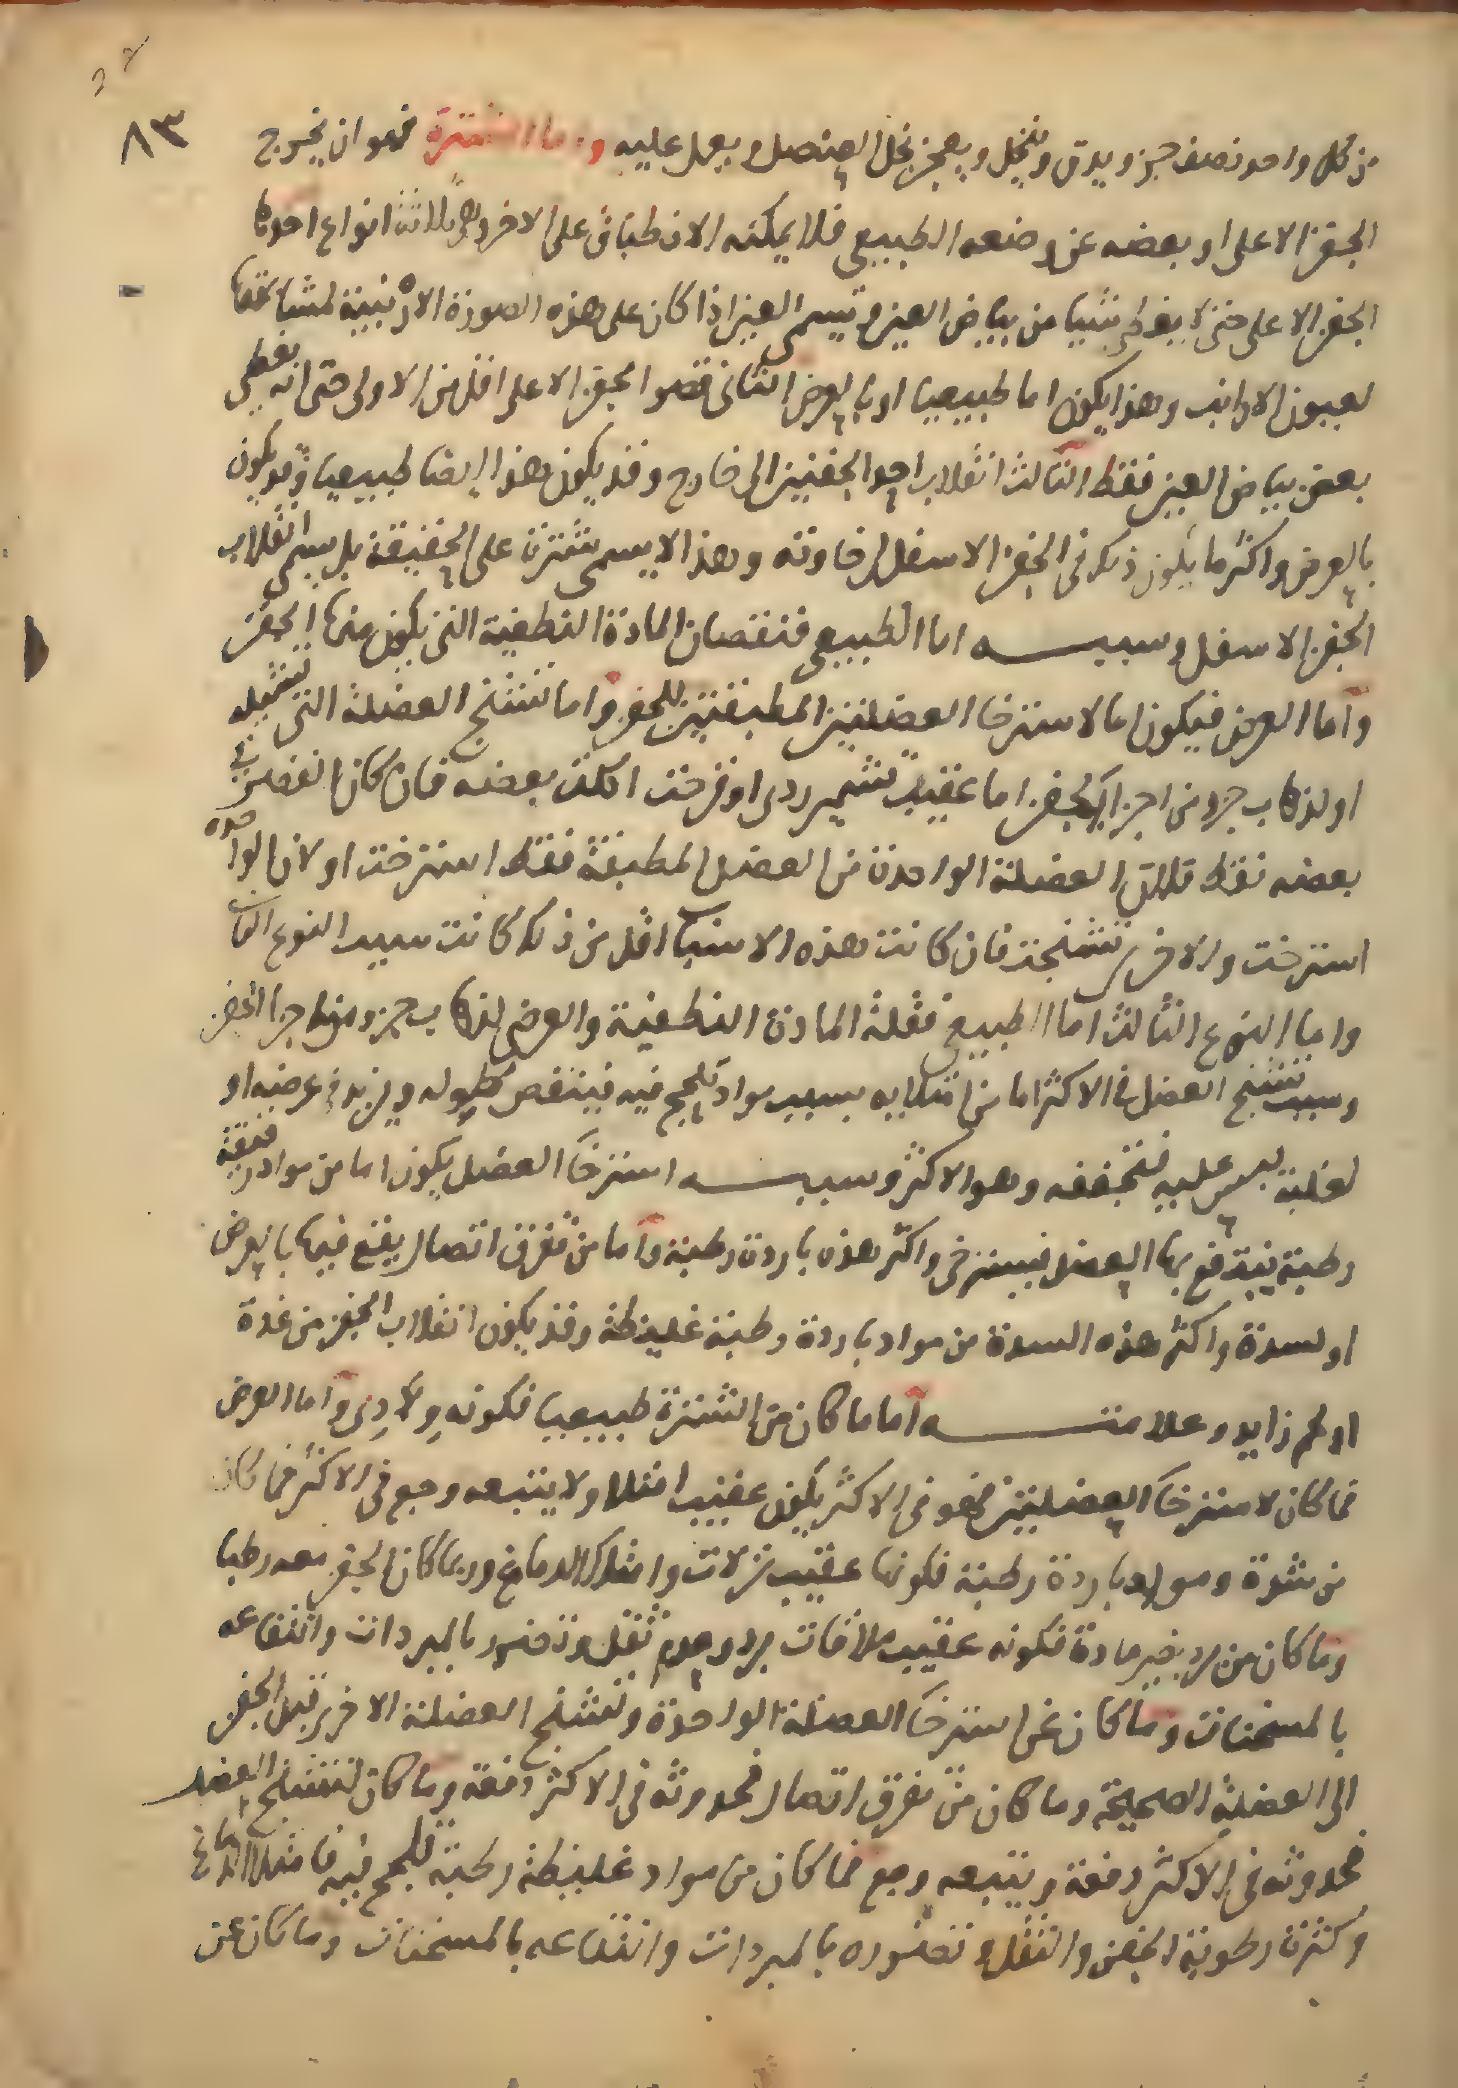 ٨٣
من كل واحد نصف جز ويدق وينخل ويعجن بخل العنصل ويعمل عليه واما الشترة فهو ان يخرج
الجفن الاعلى او بعضه عن وضعه الطبيعي فلا يمكنه الانطباق على الاخر وهي ثلاثة انواع احدها
الجفن الاعلى حتى لا يغطي شيا من بياض العين وتسمى العين اذا كان على هذه الصورة الارنبية لمشابهتها
لعيون الارانب وهذا يكون اما طبيعيا او بالعرض الثاني قصر الجفن الاعلى اقل من الاولى حتى انه يغطي
بعض بياض العين فقط الثالث انقلاب احد الجفنين الى خارج وقد يكون هذا ايضا طبيعيا وقد يكون
بالعرض واكثر ما يكون ذلك في الجفن الاسفل لرخاوته وهذا لا يسمى شترة على الحقيقة بل يسمى انقلاب
الجفن الاسفل وسببه اما الطبيعي فنقصان المادة النطفية التي يكون منها الجفن
واما العرض فيكون اما لاسترخا العضلتين المطبقتين للجفن واما لتشنج العضلة التي تشيله
او لذهاب جزء من اجزا الجفن اما عقيب تشمير ردى او قرحة اكلت بعضه فان كان القصر في
بعضه فقط فلان العضلة الواحدة من العضل المطبقة فقط استرخت او لان الواحدة
استرخت والاخرى تشنجت فان كانت هذه الاسباب اقل من ذلك كانت سبب النوع الثاني
واما النوع الثالث اما الطبيعي فقلة المادة النطفية والعرض لذهاب جزء من اجزا الجفن
وسبب تشنج العضل في الاكثر اما من امتلايه بسبب مواد تلحج فيه فينتقص طوله ويزيد في عرضه او
لغلبة يبس عليه فتجففه وهو الاكثر وسبب استرخا العضل يكون اما من مواد رقيقة
رطبة ينتقع بها العضل فيسترخى واكثر هذه باردة رطبة واما من تفرق اتصال يقع فيها بالعرض
او لسدة واكثر هذه السدة من مواد باردة رطبة غليظة وقد يكون انقلاب الجفن من غدة
او لحم زايد وعلامته اما ما كان من الشترة طبيعيا فكونه ولادى واما العرض
فما كان لاسترخا العضلتين فهو في الاكثر يكون عقيب امتلا ولا يتبعه وجع في الاكثر فما كان
من سدة ومواد باردة رطبة فكونها عقيب نزلات وامتلا الدماغ وربما كان الجفن معه رطبا
وما كان من برد بغير مادة فكونه عقيب ملاقات برد وعدم ثقل وتضرر بالمبردات وانتفاعه
بالمسخنات وما كان عن استرخا العضلة الواحدة وتشنج العضلة الاخرى تميل الجفن
الى العضلة الصحيحة وما كان من تفرق اتصال فحدوثه في الاكثر دفعة وما كان لتشنج العضل
فحدوثه في الاكثر دفعة ويتبعه وجع فما كان من مواد غليظة رطبة تلحج فيه فامتلا الدماغ
وكثرة رطوبة الجفن والثقل وتضرره بالمبردات وانتفاعه بالمسخنات وما كان عن